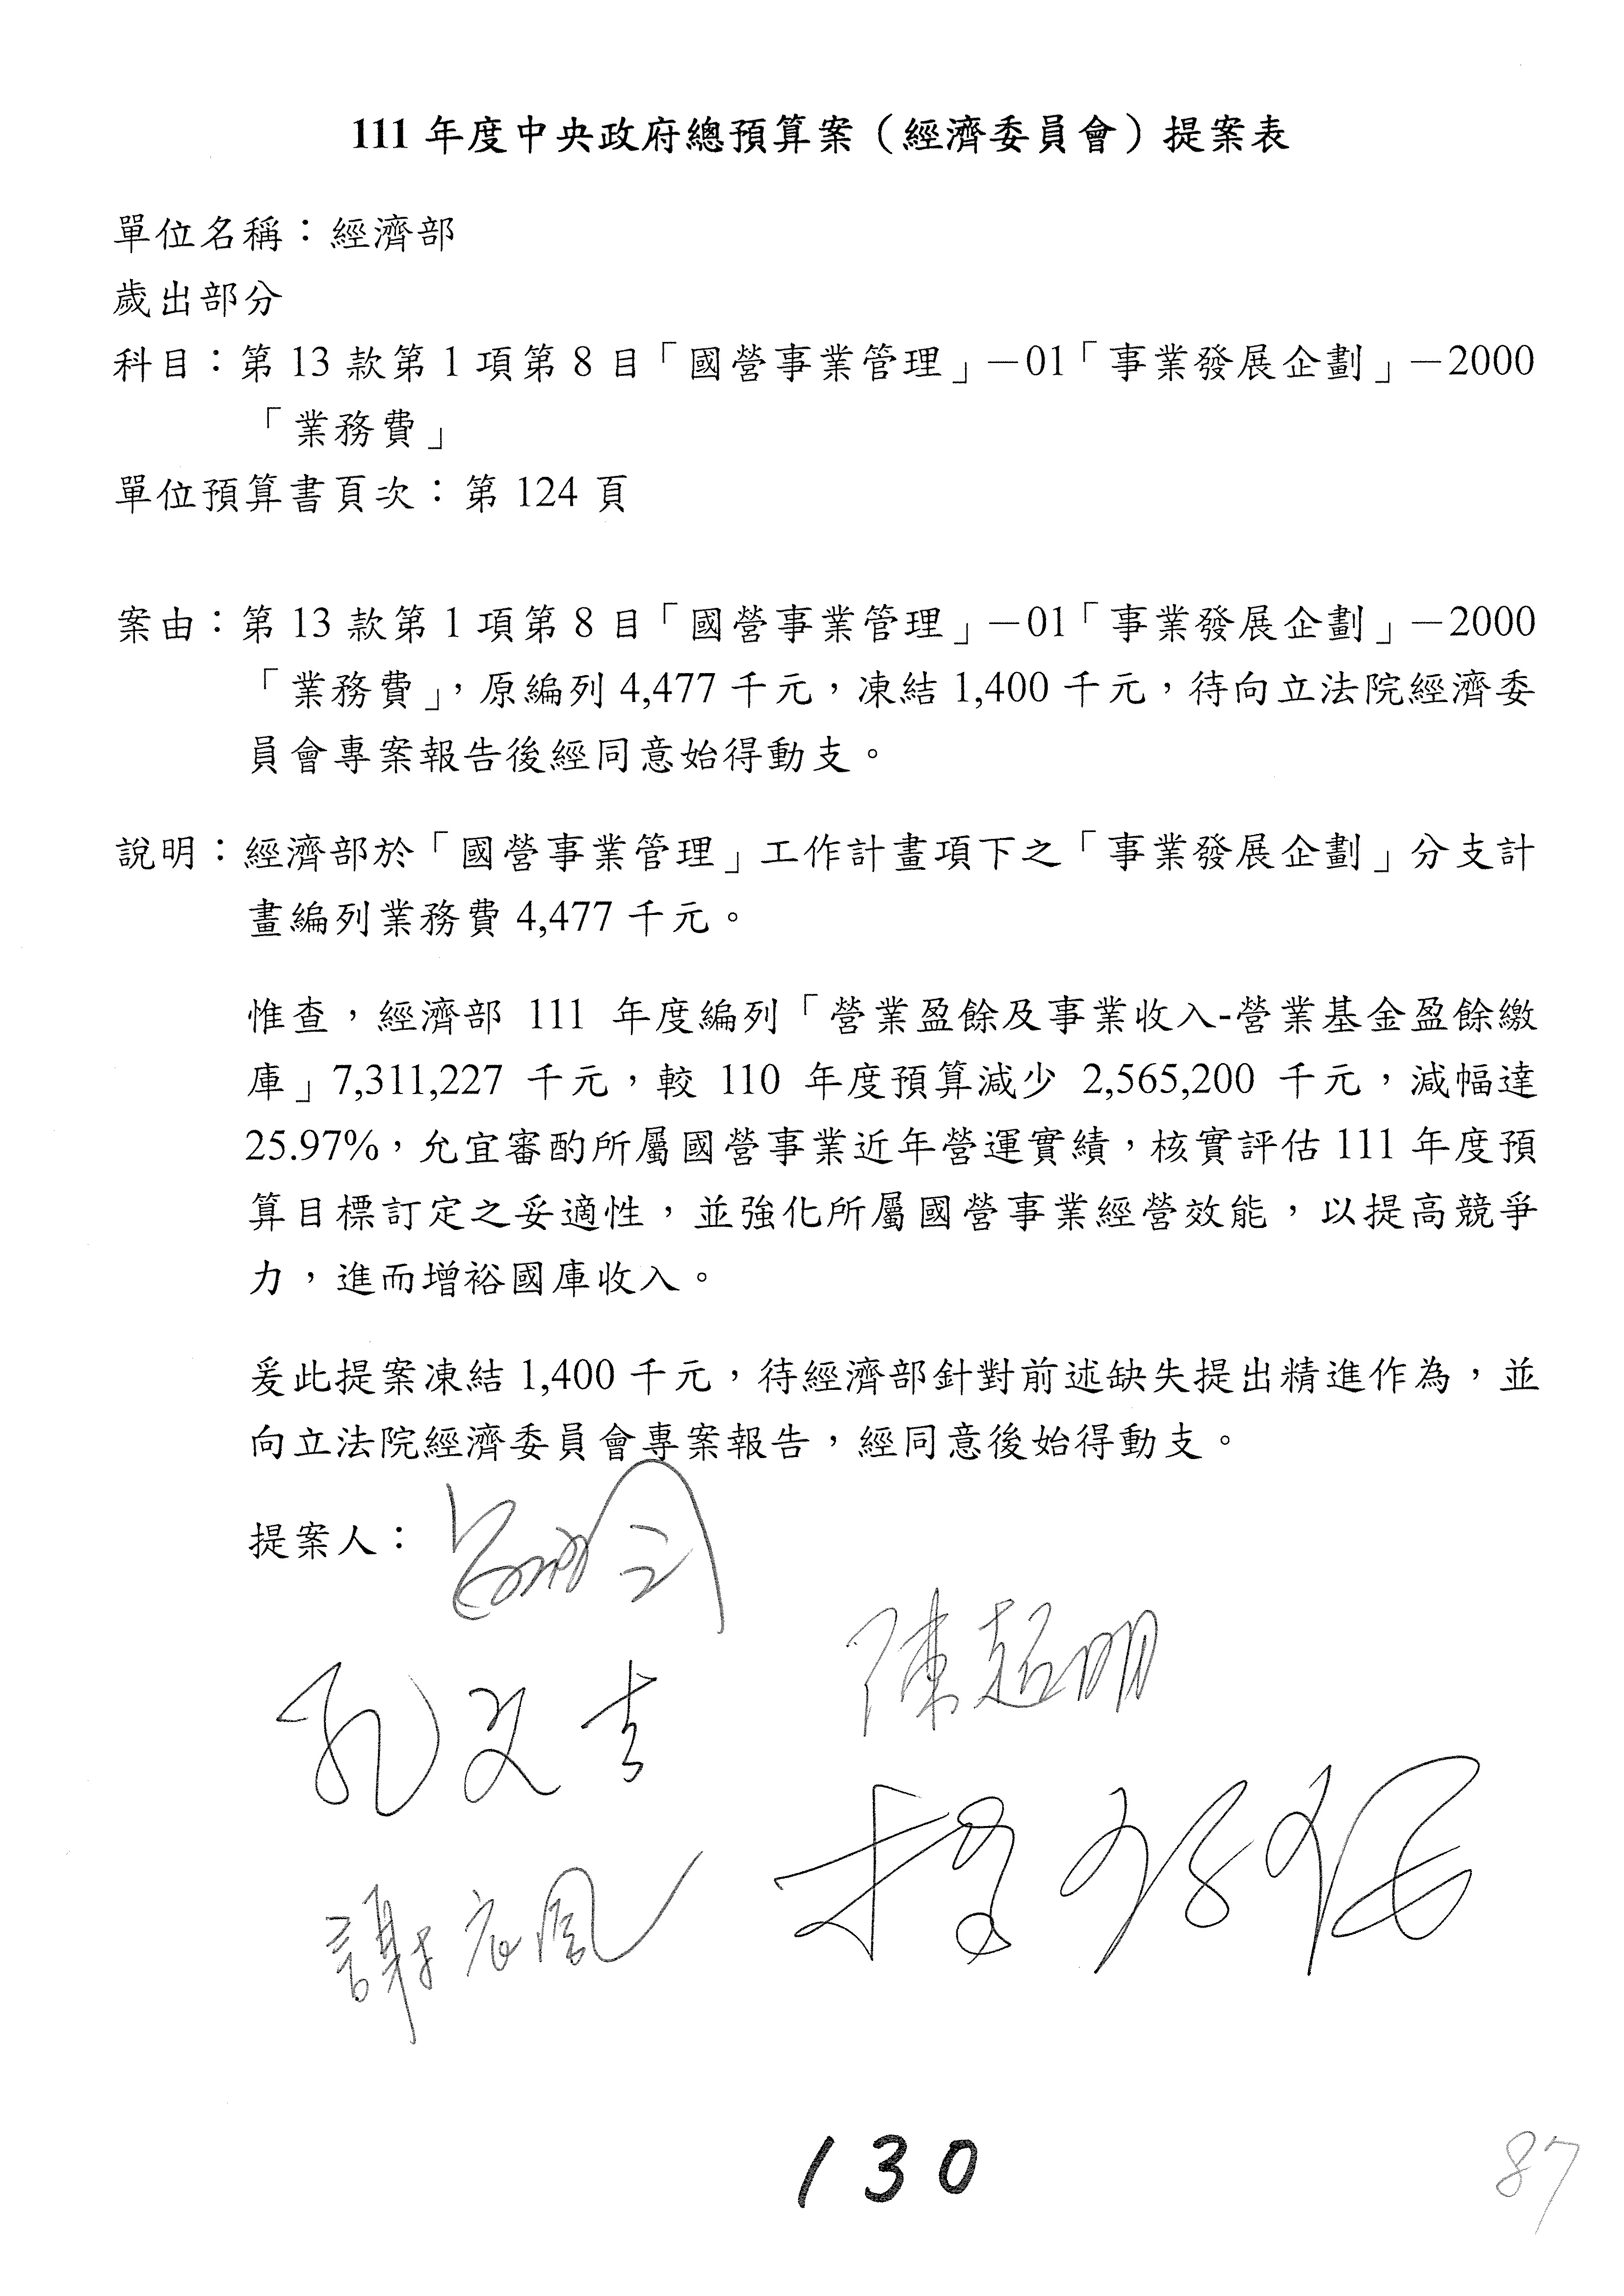 111 年度中央政府總預算案（經濟委員會）提案表
單位名稱：經濟部
歲出部分
科目：第 13 款第 1 項第 8 目「國營事業管理」－01「事業發展企劃」－2000
「業務費」
單位預算書頁次：第 124 頁
案由：第 13 款第 1 項第 8 目「國營事業管理」－01「事業發展企劃」－2000
「業務費」，原編列 4,477 千元，凍結 1,400 千元，待向立法院經濟委
員會專案報告後經同意始得動支。
說明：經濟部於「國營事業管理」工作計畫項下之「事業發展企劃」分支計
畫編列業務費 4,477 千元。
惟查，經濟部 111 年度編列「營業盈餘及事業收入-營業基金盈餘繳
庫」7,311,227 千元，較 110 年度預算減少 2,565,200 千元，減幅達
25.97%，允宜審酌所屬國營事業近年營運實績，核實評估 111 年度預
算目標訂定之妥適性，並強化所屬國營事業經營效能，以提高競爭
力，進而增裕國庫收入。
爰此提案凍結 1,400 千元，待經濟部針對前述缺失提出精進作為，並
向立法院經濟委員會專案報告，經同意後始得動支。
提案人：
陳超明
孔文吉
謝衣鳳
130
87